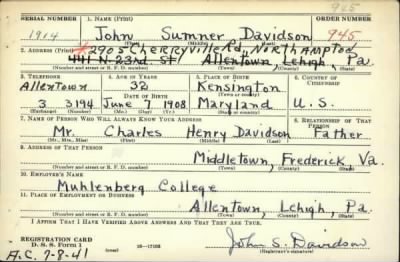 945
SERIAL NUMBER 1. NAME (Print) ORDER NUMBER
1914 John Sumner Davidson 945
(First) (Middle) (Last)
2. ADDRESS (Print) 2905 Cherryville Rd., Northampton
441 N. 23rd St. Allentown, Lehigh, Pa.
(Number and street or R. F. D. number) (Town) (County) (State)
3. TELEPHONE 4. AGE IN YEARS 5. PLACE OF BIRTH 6. COUNTRY OF CITIZENSHIP
Allentown 32 Kensington
DATE OF BIRTH (Town or county)
3 3194 June 7 1908 Maryland U. S.
(Exchange) (Number) (Mo.) (Day) (Yr.) (State or country)
7. NAME OF PERSON WHO WILL ALWAYS KNOW YOUR ADDRESS 8. RELATIONSHIP OF THAT PERSON
Mr. Charles Henry Davidson Father
(Mr., Mrs., Miss) (First) (Middle) (Last)
9. ADDRESS OF THAT PERSON
Middletown, Frederick, Va.
(Number and street or R. F. D. number) (Town) (County) (State)
10. EMPLOYER'S NAME
Muhlenberg College
11. PLACE OF EMPLOYMENT OR BUSINESS
Allentown, Lehigh, Pa.
(Number and street or R. F. D. number) (Town) (County) (State)
I AFFIRM THAT I HAVE VERIFIED ABOVE ANSWERS AND THAT THEY ARE TRUE.
REGISTRATION CARD
D. S. S. Form 1 John S. Davidson
(Registrant's signature)
A.C. 7-8-41